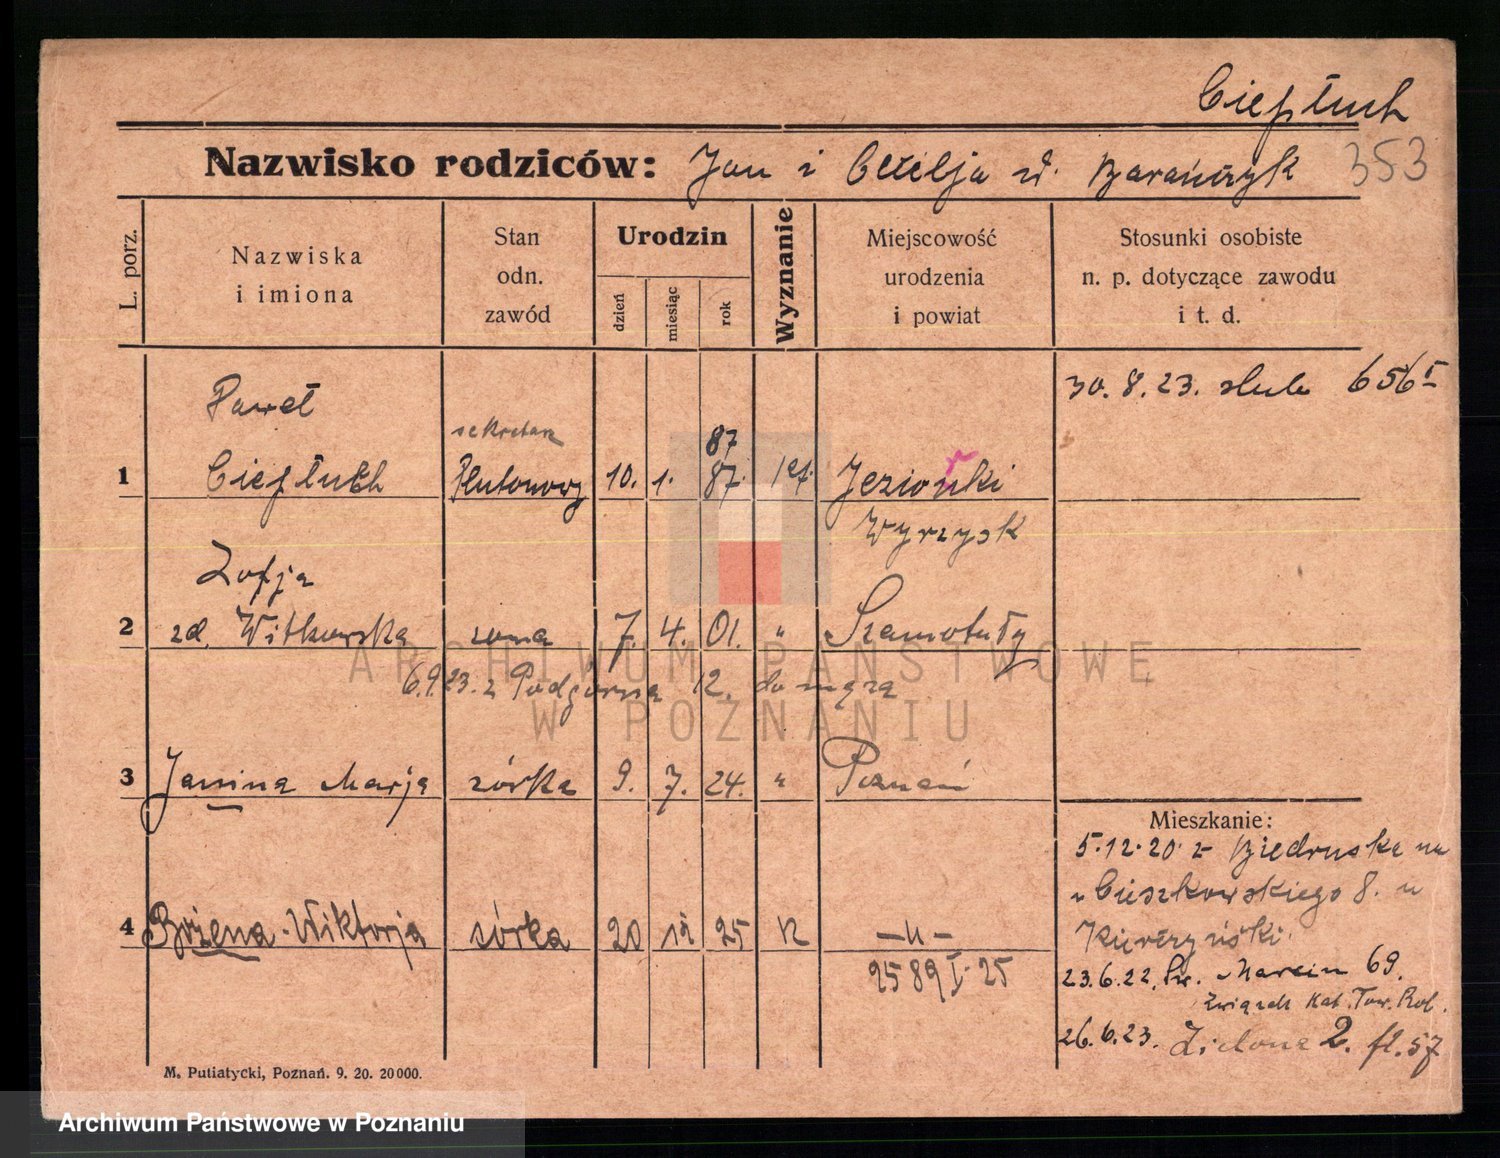 Ciepłuch
Nazwisko rodziców: Jan i Cecylja z d. Barańczyk 353
L. porz.
Nazwiska i imiona
Stan odn. zawód
Urodzin
dzień
miesiąc
rok
Wyznanie
Miejscowość urodzenia i powiat
Stosunki osobiste n. p. dotyczące zawodu i t. d.
30. 8. 23. ślub 656 I
Paweł
sekretarz
87
1 Ciepłuch Plutonowy 10. 1. 87. kat. Jeziorki
Wyrzysk
Zofja
2 zd. Witkowska żona 7. 4. 01. " Szamotuły
6.9.23. z Podgórna 12. do męża
3 Janina Marja córka 9. 7. 24. " Poznań
Mieszkanie:
5.12.20 z Biedruska na
Cieszkowskiego 8. u
4 Bożena-Wiktorja córka 20 12 25 K -"-
2589 I 25
23.6.22. Św. Marcin 69.
Związek Kat. Tow. Rob.
26.6.23. Zielona 2. fl. 57
M. Putiatycki, Poznań. 9. 20. 20000.
ARCHIWUM PAŃSTWOWE
W POZNANIU
Archiwum Państwowe w Poznaniu